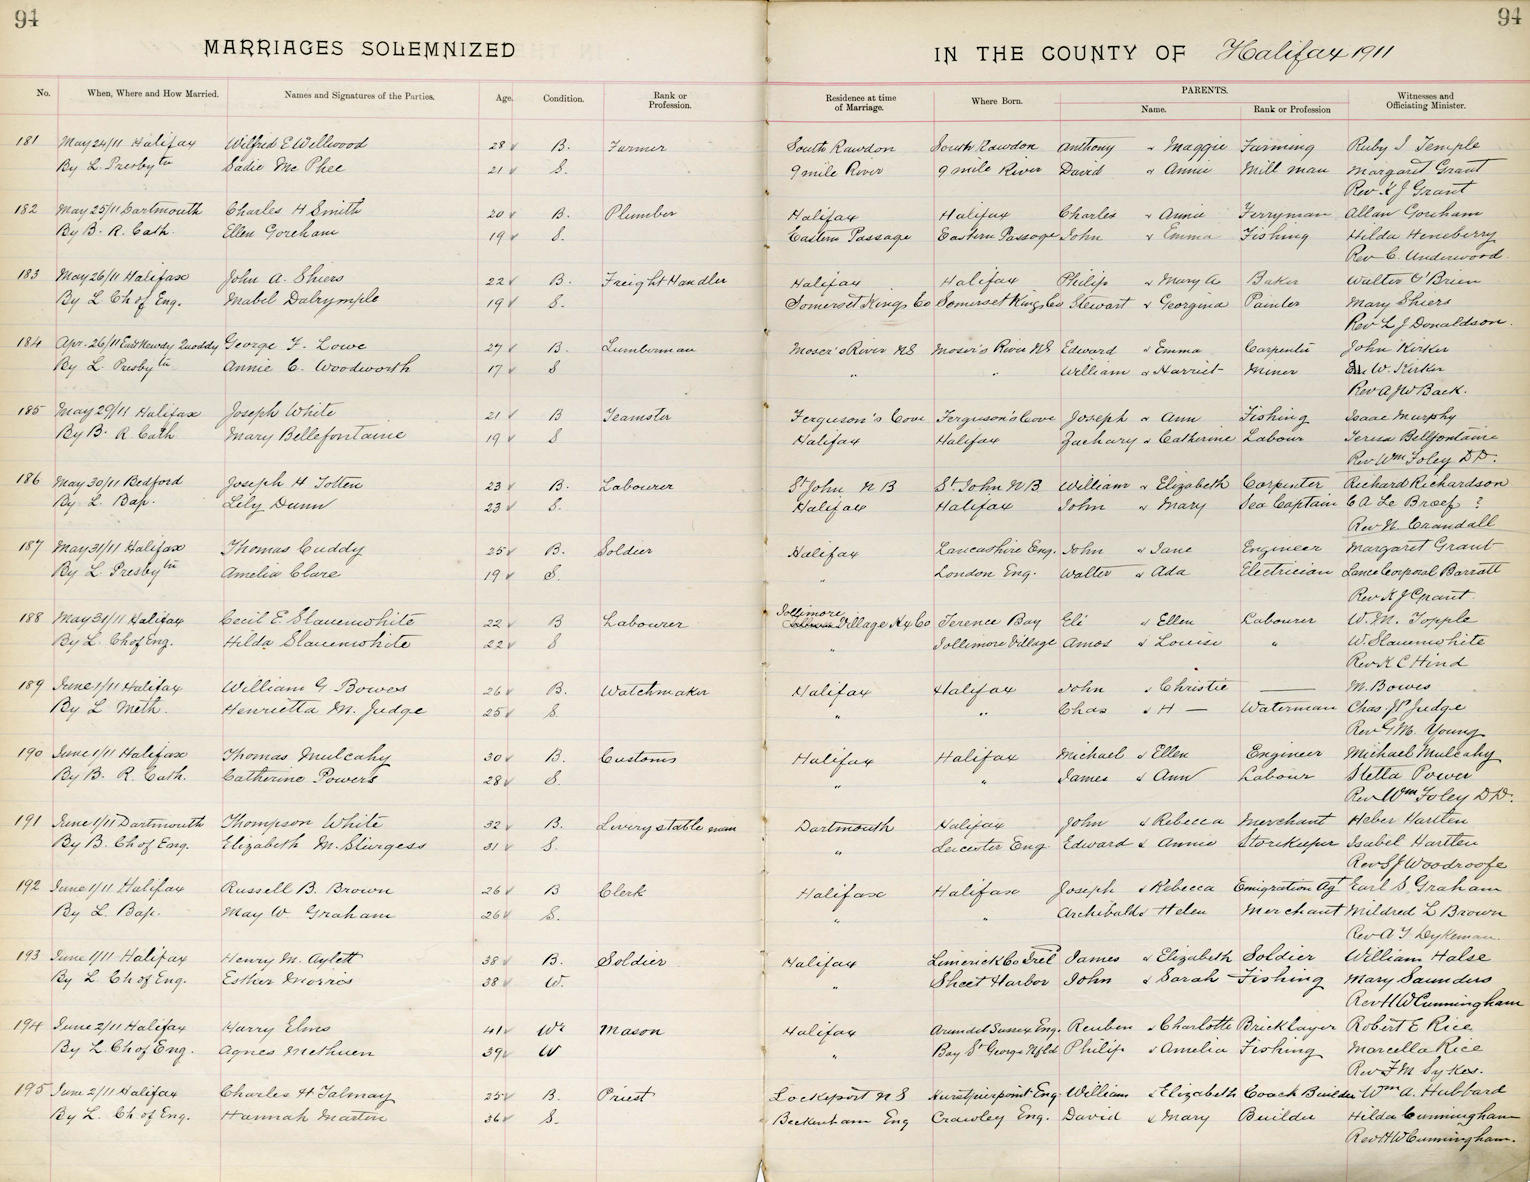 94
94
MARRIAGES SOLEMNIZED
IN THE COUNTY OF Halifax 1911
No. When, Where and How Married. Names and Signatures of the Parties. Age. Condition. Rank or Profession. Residence at time of Marriage. Where Born. PARENTS. Name. Rank or Profession Witnesses and Officiating Minister.
181 May 24/11 Halifax Wilfred E Wellwood 28 B. Farmer South Rawdon South Rawdon Anthony & Maggie Farming Ruby I Temple
By L. Presbytn Sadie Mc Phee 21 S. 9 mile River 9 mile River David & Annie Mill man Margaret Grant
Rev K J Grant
182 May 25/11 Dartmouth Charles H Smith 20 B. Plumber Halifax Halifax Charles & Annie Ferryman Allan Goreham
By B. R. Cath. Ellen Goreham 19 S. Eastern Passage Eastern Passage John & Emma Fishing Hilda Heneberry
Rev C. Underwood.
183 May 26/11 Halifax John A. Shiers 22 B. Freight Handler Halifax Halifax Philip & Mary A Baker Walter O'Brien
By L Ch of Eng. Mabel Dalrymple 19 S. Somerset Kings Co Somerset Kings Co Stewart & Georgina Painter Mary Shiers
Rev L J Donaldson.
184 Apr. 26/11 East Quoddy George F. Lowe 27 B. Lumberman Moser's River NS Moser's River NS Edward & Emma Carpenter John Kirker
By L. Presbytn Annie C. Woodworth 17 S " " William & Harriet Miner W. Kirker
Rev A J W Back.
185 May 29/11 Halifax Joseph White 21 B Teamster Ferguson's Cove Ferguson's Cove Joseph & Ann Fishing Isaac Murphy
By B. R Cath Mary Bellefontaine 19 S Halifax Halifax Zachary & Catherine Labour Teresa Bellfontaine
Rev Wm Foley D D.
186 May 30/11 Bedford Joseph H Totten 23 B. Labourer St John N B St. John N B William & Elizabeth Carpenter Richard Richardson
By L. Bap. Lily Dunn 23 S. Halifax Halifax John & Mary Sea Captain C A Le Broef ?
Rev N. Crandall
187 May 31/11 Halifax Thomas Cuddy 25 B. Soldier Halifax Lancashire Eng. John & Jane Engineer Margaret Grant
By L. Presbytn Amelia Clare 19 S. " London Eng. Walter & Ada Electrician Lance Corporal Barratt
Rev K J Grant.
188 May 31/11 Halifax Cecil E Slauenwhite 22 B Labourer Jollimore Village Hx Co Terence Bay Eli & Ellen Labourer W. M. Topple
By L. Ch of Eng. Hilda Slauenwhite 22 S " Jollimore Village Amos & Louisa " W Slauenwhite
Rev K C Hind
189 June 1/11 Halifax William G Bowes 26 B. Watchmaker Halifax Halifax John & Christie — M. Bowes
By L Meth. Henrietta M. Judge 25 S. " " Chas & H — Waterman Chas Judge
Rev G M. Young
190 June 1/11 Halifax Thomas Mulcahy 30 B. Customs Halifax Halifax Michael & Ellen Engineer Michael Mulcahy
By B. R. Cath. Catherine Powers 28 S. " " James & Ann Labour Stella Power
Rev Wm Foley D D.
191 June 1/11 Dartmouth Thompson White 32 B. Livery stable man Dartmouth Halifax John & Rebecca Merchant Heber Hartlen
By B. Ch of Eng. Elizabeth M. Sturgess 31 S. " Leicester Eng Edward & Annie Storekeeper Isabel Hartlen
Rev S J Woodroofe
192 June 1/11 Halifax Russell B. Brown 26 B Clerk Halifax Halifax Joseph & Rebecca Emigration Agt Earl S Graham
By L. Bap. May W Graham 26 S. " " Archibald & Helen Merchant Mildred L Brown
Rev A J Dykeman.
193 June 1/11 Halifax Henry M. Aylett 38 B. Soldier Halifax Limerick Co Irel James & Elizabeth Soldier William Halse
By L Ch of Eng. Esther Morris 38 W. " Sheet Harbor John & Sarah Fishing Mary Saunders
Rev H W Cunningham
194 June 2/11 Halifax Harry Elms 41 Wr Mason Halifax Arundel Sussex Eng. Reuben & Charlotte Bricklayer Robert E Rice
By L. Ch of Eng. Agnes Methuen 39 W " Bay St George Nfld Philip & Amelia Fishing Marcella Rice
Rev F M Sykes.
195 June 2/11 Halifax Charles H Talmay 25 B. Priest Lockeport N S Hurstpierpoint Eng William & Elizabeth Coach Builder Wm A. Hubbard
By L. Ch of Eng. Hannah Martin 36 S. Beckenham Eng Crawley Eng. David & Mary Builder Hilda Cunningham
Rev H W Cunningham.